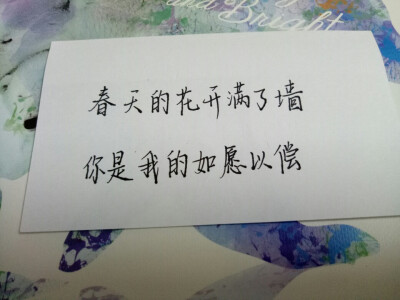 and Bright
春天的花开满了墙
你是我的如愿以偿